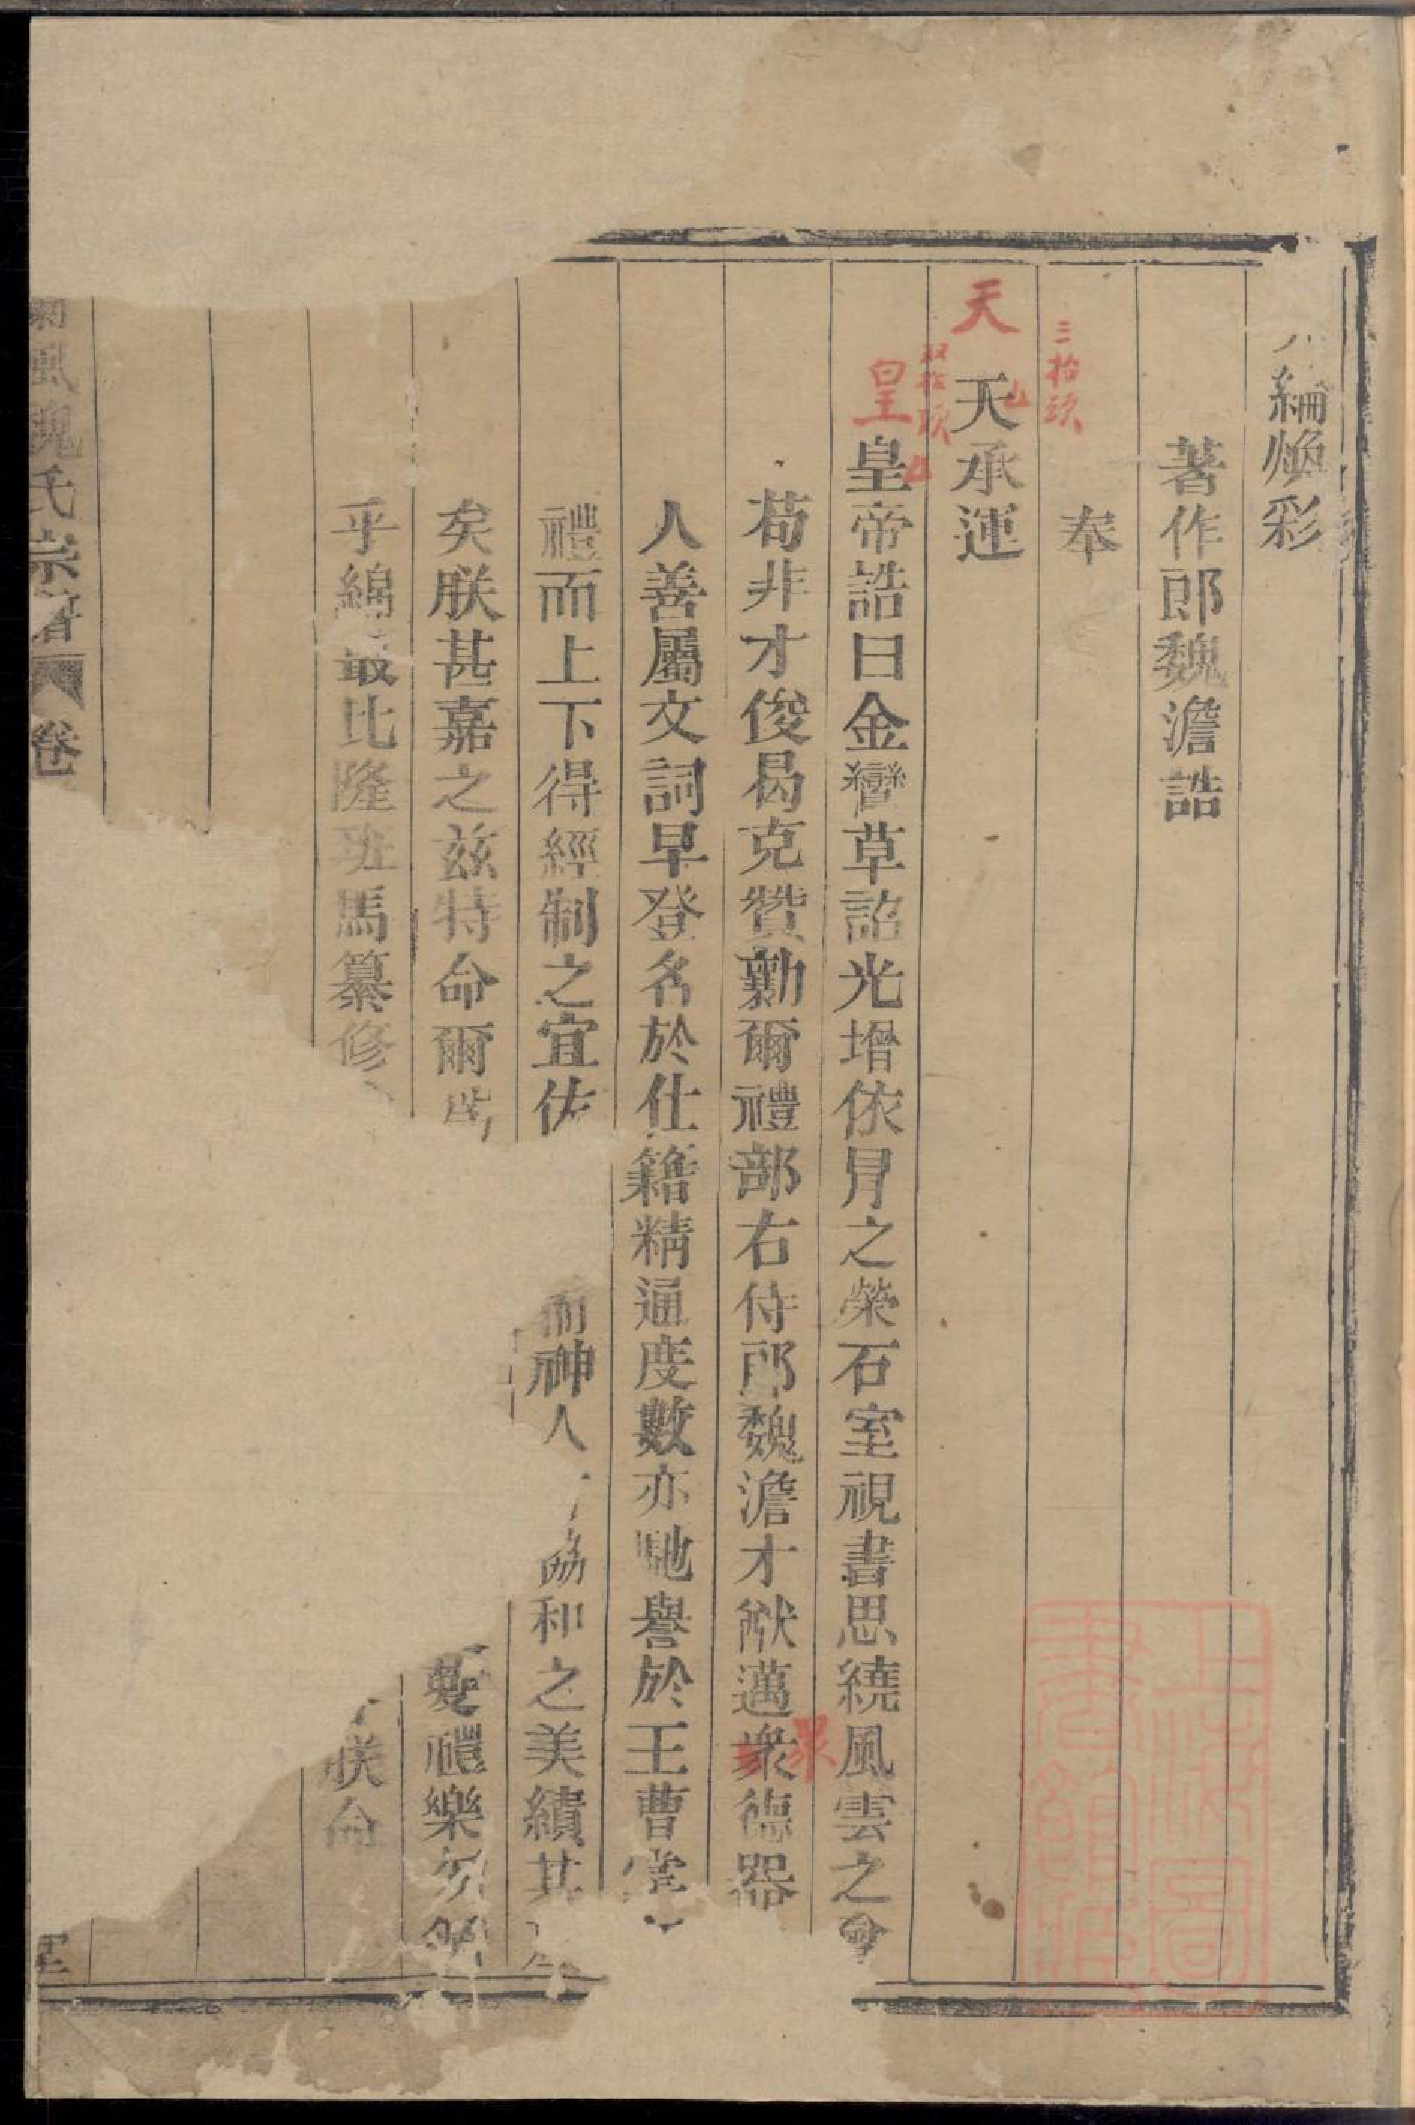 綸煥彩
著作郎魏澹誥
三抬頭
奉
天
天承運
双抬頭
皇
皇帝誥曰金鑾草詔光增依冐之榮石室視書思繞風雲之會
苟非才俊曷克贊勷爾禮部右侍郎魏澹才猷邁衆德器
眾
人善屬文詞早登名於仕籍精通度數亦馳譽於王曹掌
禮而上下得經制之宜佐
而神人
協和之美績其
矣朕甚嘉之兹特命爾
夔禮樂勿
乎綿蕞比隆班馬纂修
朕命
風魏氏宗譜
卷
堂
上海圖書館藏